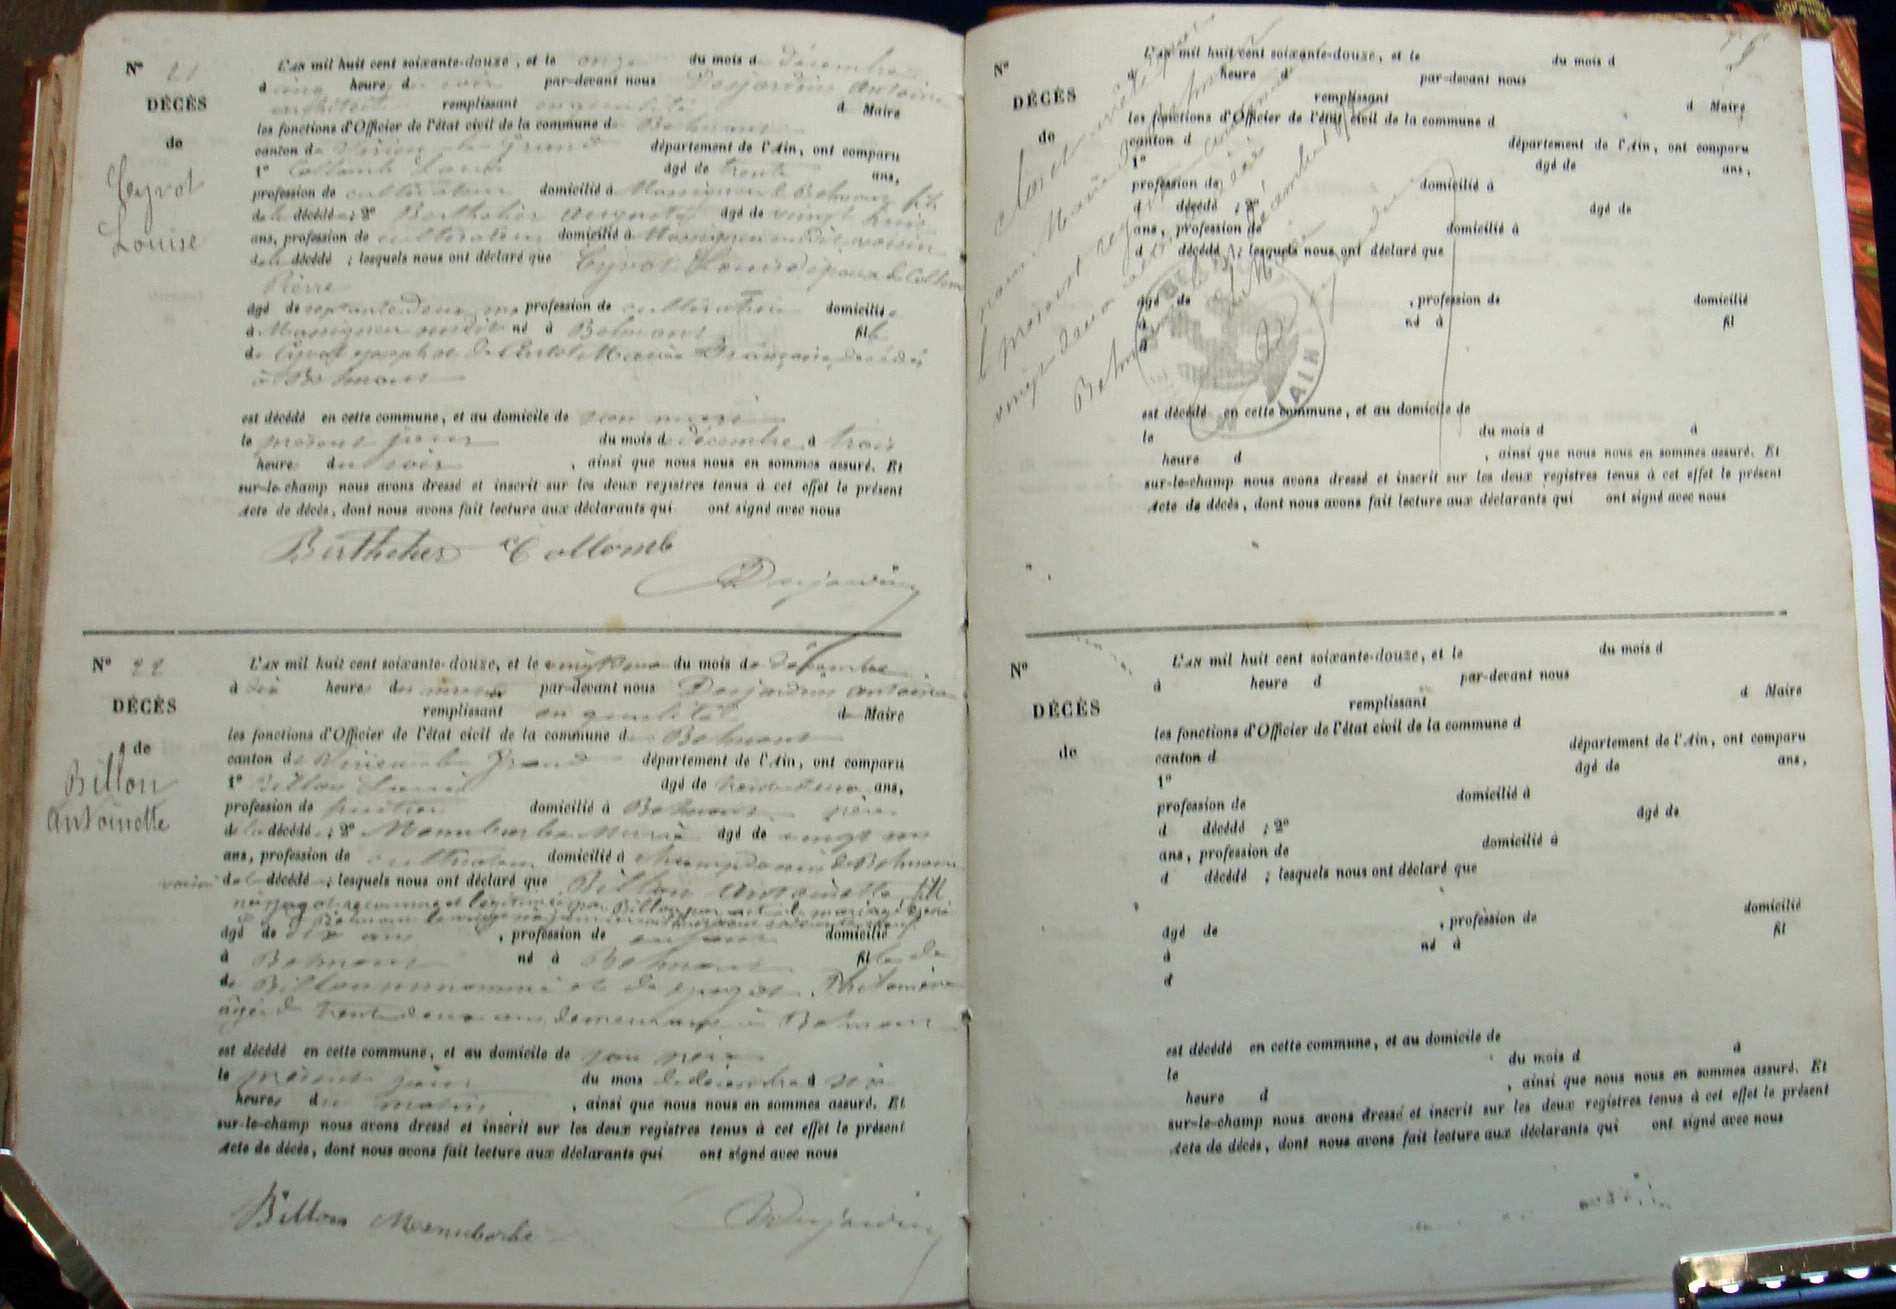 N° 21
DÉCÈS
de
Ceyvot
Louise
L'AN mil huit cent soixante-douze, et le onze du mois d décembre
à cinq heure du soir par-devant nous Desjardins Antoine
architecte remplissant en qualité d Maire
les fonctions d'Officier de l'état civil de la commune de Belmont
canton de Virieu le Grand département de l'Ain, ont comparu
1° Collomb Louis âgé de trente ans,
profession de cultivateur domicilié à Massignieu de Belmont fils
de la décédée ; 2° Berthelier Auguste âgé de vingt huit
ans, profession de cultivateur domicilié à Massignieu susdit, voisin
de la décédé ; lesquels nous ont déclaré que Louise épouse de Collomb
Pierre
âgé de septante deux ans profession de cultivatrice domiciliée
à Massignieu susdit né à Belmont fille
de Joseph et de Marie Françoise, décédés
à Belmont
est décédé en cette commune, et au domicile de son mari
le présent jour du mois d décembre à trois
heure du soir , ainsi que nous nous en sommes assuré. Et
sur-le-champ nous avons dressé et inscrit sur les deux registres tenus à cet effet le présent
Acte de décès, dont nous avons fait lecture aux déclarants qui ont signé avec nous
Berthelier Collomb
Desjardins
N° 22
DÉCÈS
de
Billon
Antoinette
L'AN mil huit cent soixante-douze, et le vingt deux du mois de décembre
à dix heures du matin par-devant nous Desjardins Antoine
remplissant en qualité d Maire
les fonctions d'Officier de l'état civil de la commune d Belmont
canton de Virieu le Grand département de l'Ain, ont comparu
1° Billon Louis âgé de trente deux ans,
profession de domicilié à Belmont père
de la décédée ; 2° Mennborbe âgé de vingt
ans, profession de cultivateur domicilié à de Belmont
voisin de la décédé ; lesquels nous ont déclaré que Billon Antoinette, fille
reconnue et légitimée par Billon par acte de mariage
Belmont
âgé de dix ans , profession de domicilié
à Belmont né à Belmont fille de
de Billon susnommé et de Philomène
âgée de trente deux ans demeurant à Belmont
est décédé en cette commune, et au domicile de son père
le présent jour du mois de décembre à six
heures du matin , ainsi que nous nous en sommes assuré. Et
sur-le-champ nous avons dressé et inscrit sur les deux registres tenus à cet effet le présent
Acte de décès, dont nous avons fait lecture aux déclarants qui ont signé avec nous
Billon Mennborbe Desjardins
N°
DÉCÈS
de
L'AN mil huit cent soixante-douze, et le du mois d
à heure d par-devant nous
remplissant d Maire
les fonctions d'Officier de l'état civil de la commune d
canton d département de l'Ain, ont comparu
1° âgé de ans,
profession de domicilié à
d décédé ; 2° âgé de
ans, profession de domicilié à
d décédé ; lesquels nous ont déclaré que
âgé de , profession de domicilié
à né à fil
d
est décédé en cette commune, et au domicile de
le du mois d à
heure d , ainsi que nous nous en sommes assuré. Et
sur-le-champ nous avons dressé et inscrit sur les deux registres tenus à cet effet le présent
Acte de décès, dont nous avons fait lecture aux déclarants qui ont signé avec nous
Clos et arrêté par
nous Maire de Belmont
le présent registre
vingt deux
Belmont décembre 1872
Le Maire
AIN
N°
DÉCÈS
de
L'AN mil huit cent soixante-douze, et le du mois d
à heure d par-devant nous
remplissant d Maire
les fonctions d'Officier de l'état civil de la commune d
canton d département de l'Ain, ont comparu
1° âgé de ans,
profession de domicilié à
d décédé ; 2° âgé de
ans, profession de domicilié à
d décédé ; lesquels nous ont déclaré que
âgé de , profession de domicilié
à né à fil
d
est décédé en cette commune, et au domicile de
le du mois d à
heure d , ainsi que nous nous en sommes assuré. Et
sur-le-champ nous avons dressé et inscrit sur les deux registres tenus à cet effet le présent
Acte de décès, dont nous avons fait lecture aux déclarants qui ont signé avec nous